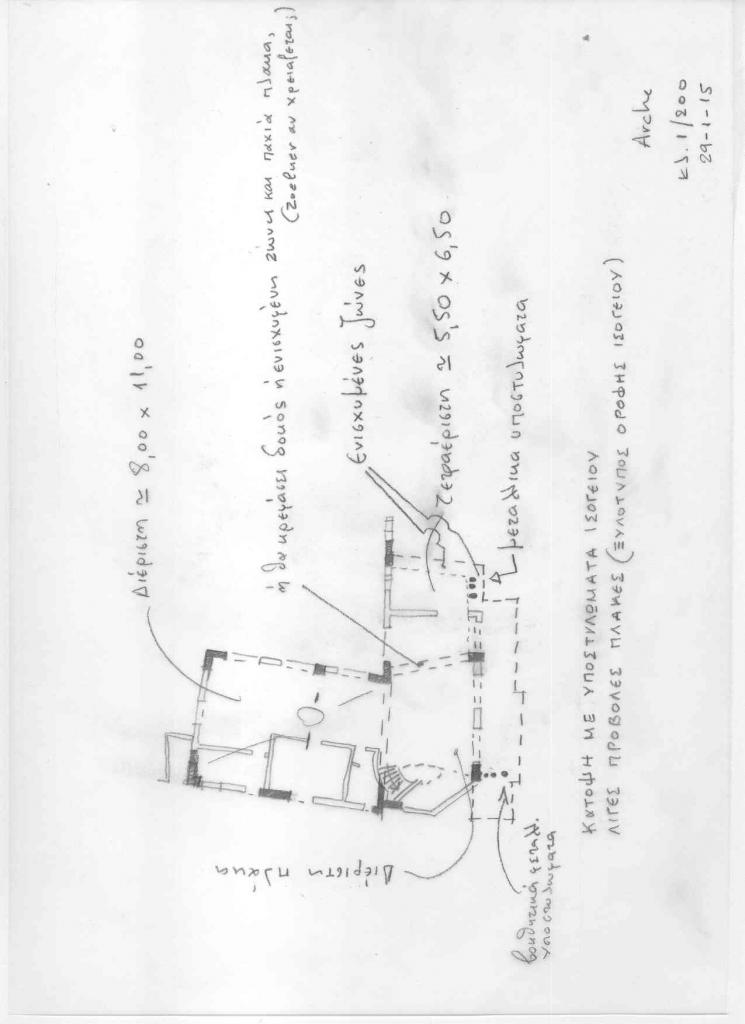 Διέριστη ≃ 8,00 x 11,00
ή θα κρεμάσει δοκός ή ενισχυμένη ζώνη και παχιά πλάκα,
(Ζοεлнεν αν χρειάζεται;)
Ενισχυμένες ζώνες
τετραέριστη ≃ 5,50 x 6,50
μεταλλικα υποστυλωματα
Διέριστη πλάκα
βοηθητικά μεταλλ.
υποστυλωματα
ΚΑΤΟΨΗ ΜΕ ΥΠΟΣΤΥΛΩΜΑΤΑ ΙΣΟΓΕΙΟΥ
ΛΙΓΕΣ ΠΡΟΒΟΛΕΣ ΠΛΑΚΕΣ (ΞΥΛΟΤΥΠΟΣ ΟΡΟΦΗΣ ΙΣΟΓΕΙΟΥ)
Arche
κλ. 1/200
29-1-15